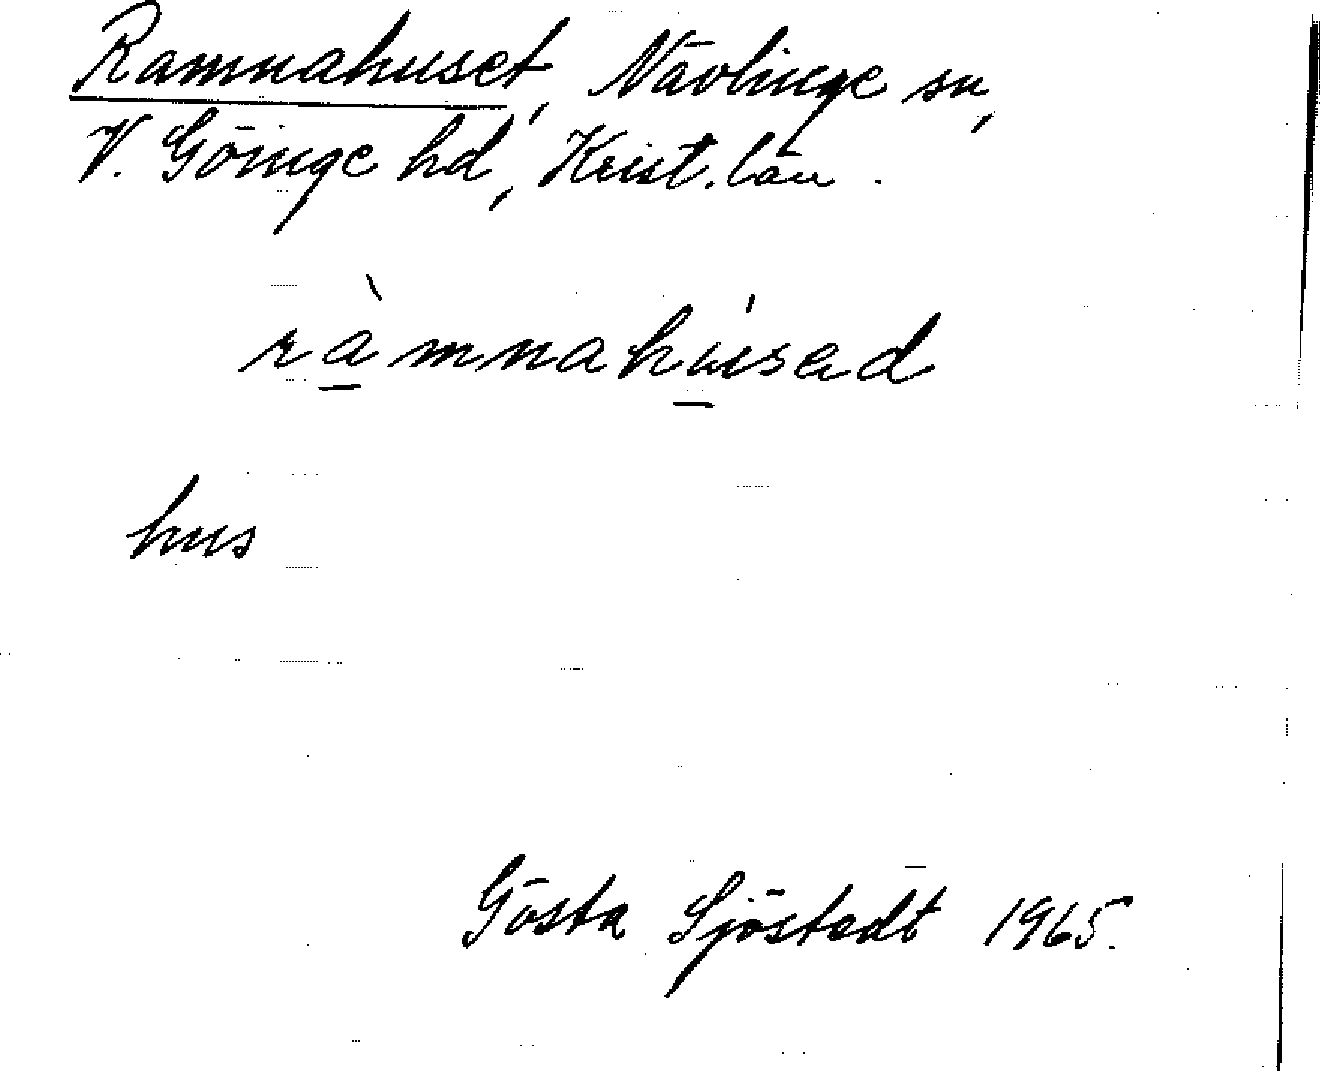 Ramnahuset, Nävlinge sn,
V. Göinge hd, Krist. län.
ràmnahúsad
hus
Gösta Sjöstedt 1965.